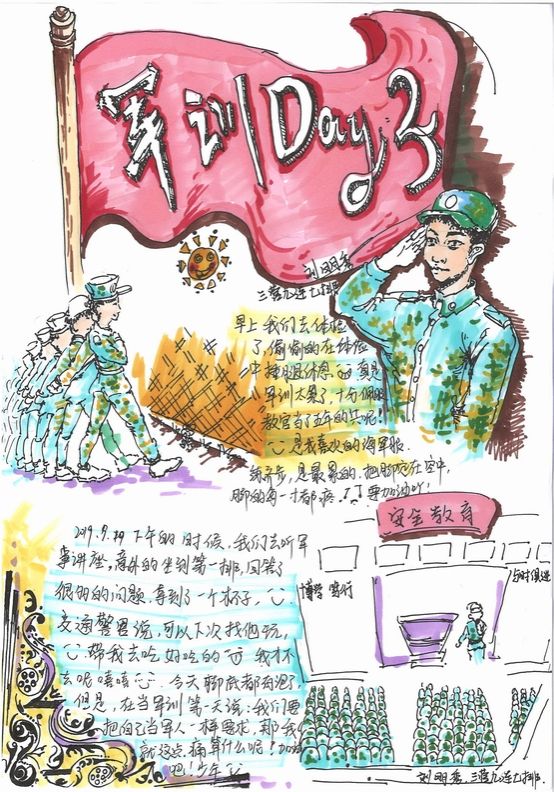 军训Day 3
刘明秀
三营九连七排
早上我们去体检
了,偷偷的在体检
中摸腿休息。真是
军训太累了,
教官当了五年的兵呢!
是我喜欢的海军服.
齐步,是最累的.把脚定在空中,
脚的每一寸都疼!!要加油吖!
安全教育
2019.9.
下午的时候,我们去听军
事讲座,意外的坐到第一排,回答了
很多的问题.拿到了一个杯子,
交通警官说,可以下次找他玩,
带我去吃好吃的 我才不
去呢嘻嘻 今天脚底都有泡了
但是,在当军训第一天说:我们要
把自己当军人一样要求,那我
就这点痛算什么呢!加油
吧!少年
博学 笃行
与时俱进
刘明秀.三营九连七排.